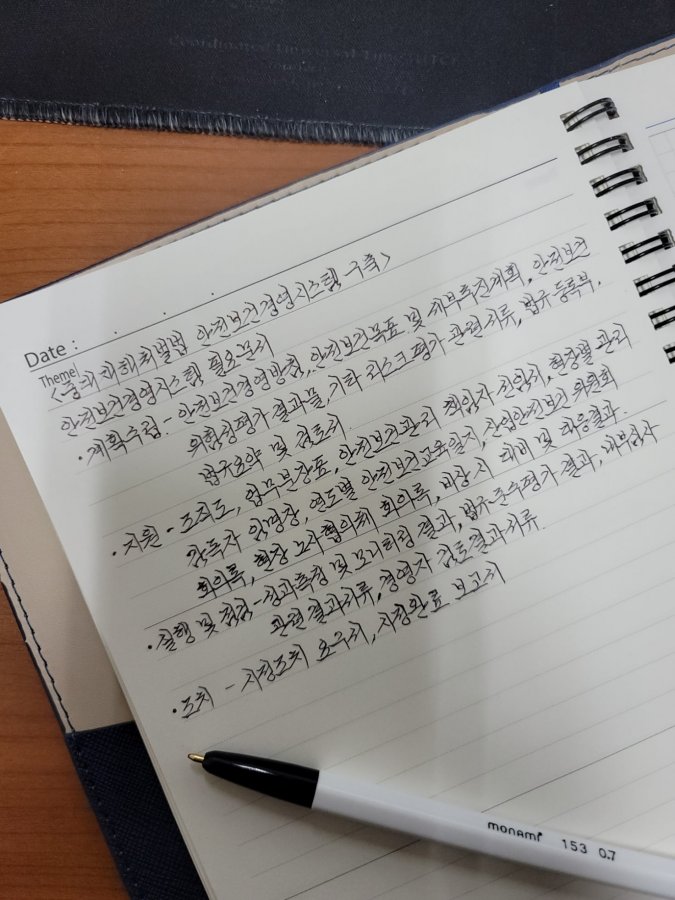 Date :
Theme
<중대재해처벌법 안전보건경영시스템 구축>
안전보건경영시스템 필요문서
· 계획수립 - 안전보건경영방침, 안전보건목표 및 세부추진계획, 안전보건
위험성평가 결과물, 기타 리스크 평가 관련서류, 법규등록부,
법규요약 및 검토서.
· 지원 - 조직도, 업무분장표, 안전보건관리 책임자 선임서, 현장별 관리
감독자 임명장, 연도별 안전보건교육일지, 산업안전보건 위원회
회의록, 현장 노사협의체 회의록, 비상 시 대비 및 대응결과.
· 실행 및 점검 - 성과측정 및 모니터링 결과, 법규준수평가 결과, 내부심사
관련결과서류, 경영자 검토결과서류.
· 조치 - 시정조치 요구서, 시정완료 보고서
monami 153 0.7